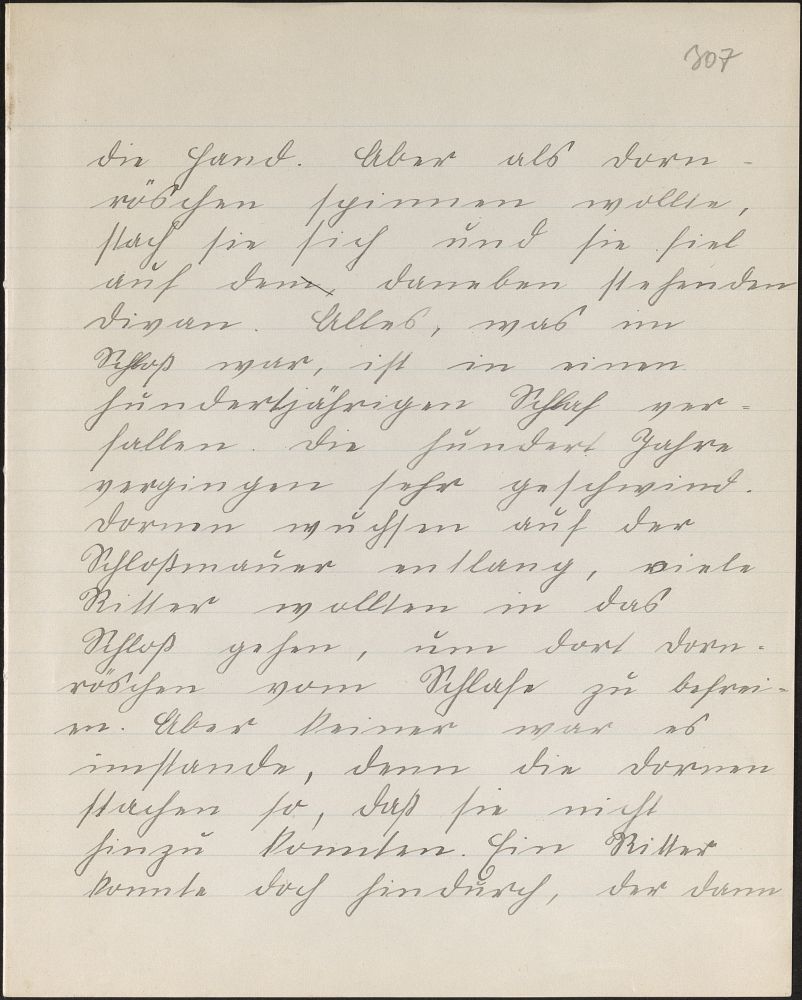 307
die Hand. Aber als Dorn-
röschen spinnen wollte,
stach sie sich und sie fiel
auf den daneben stehenden
Divan. Alles, was im
Schloß war, ist in einen
hundertjährigen Schlaf ver-
fallen. Die hundert Jahre
vergingen sehr geschwind.
Dornen wuchsen auf der
Schloßmauer entlang, viele
Ritter wollten in das
Schloß gehen, um dort Dorn-
röschen vom Schlafe zu befrei-
en. Aber keiner war es
imstande, denn die Dornen
stachen so, daß sie nicht
hinzu konnten. Ein Ritter
konnte doch hindurch, der dann